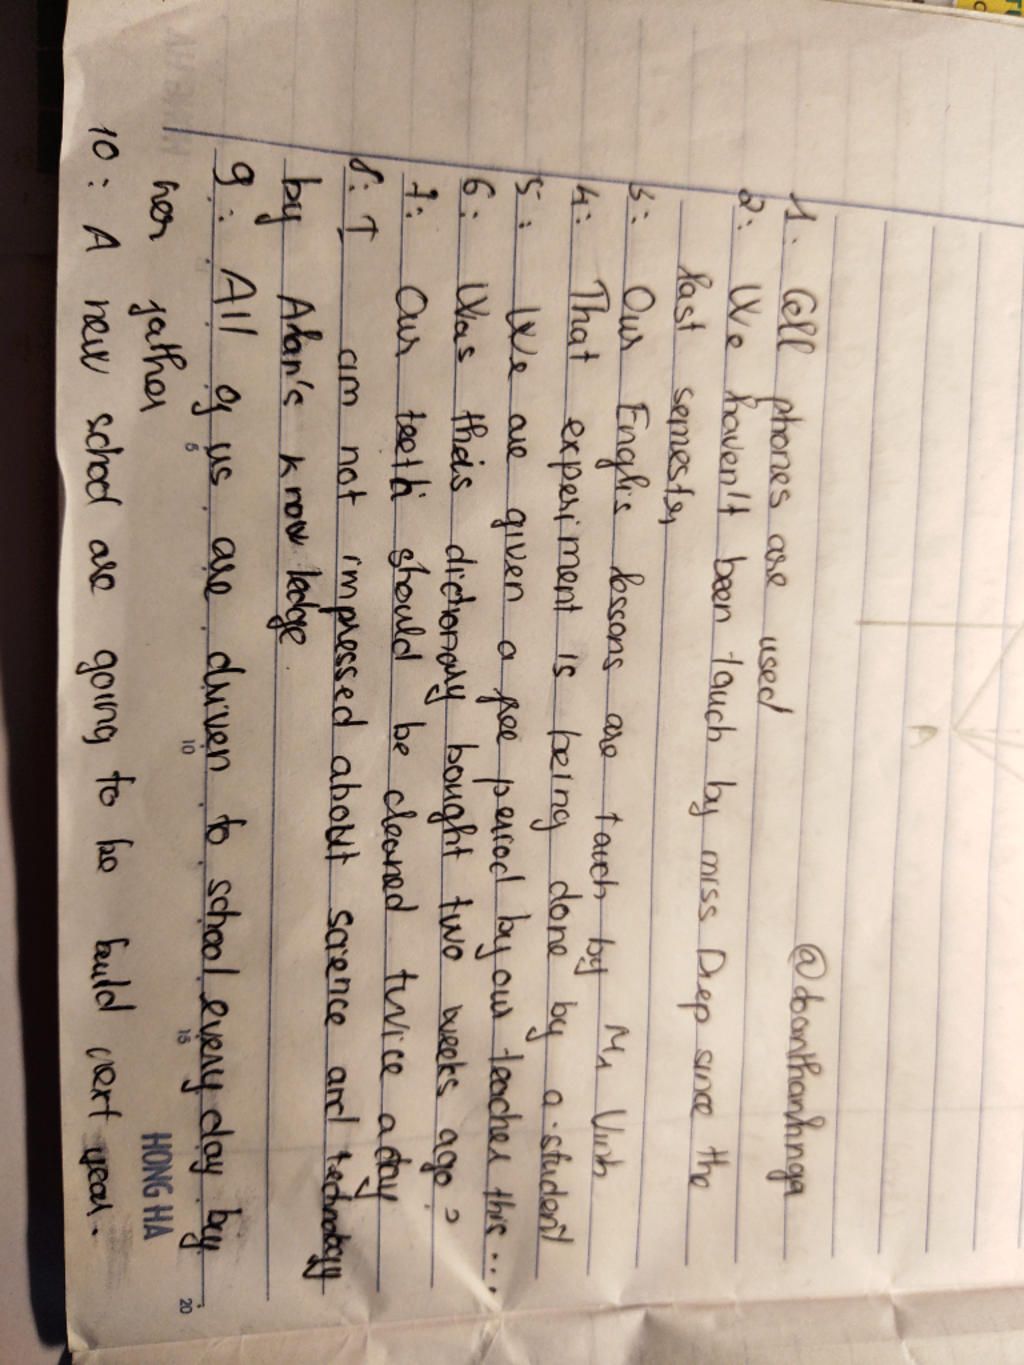 @doanthanhnga
1. Cell phones are used
2: We haven't been tauch by miss Diep since the
last semester
3: Our Englis lessons are tauch by Mr Vinh
4: That experiment is being done by a student
5: We are given a free peirod by our teacher this...
6: Was this dictionary bought two weeks ago?
7: Our teeth should be cleaned twice a day
8: I am not impressed about science and technology
by Alan's knowledge.
9: All of us are driven to school every day by
her father
10: A new school are going to be build next year.
HONG HA
5
10
15
20